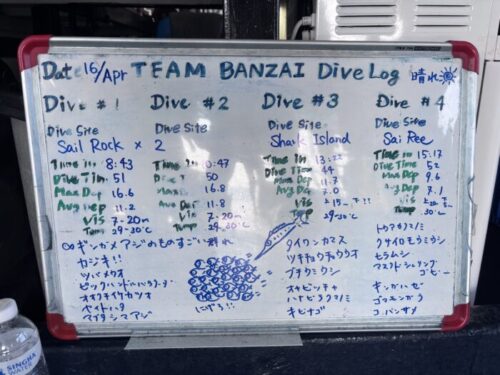 Date 16/Apr TEAM BANZAI Dive Log 晴れ
Dive #1 Dive #2 Dive #3 Dive #4
Dive Site Dive Site Dive Site Dive Site
Sail Rock x 2 Shark Island Sai Ree
Time in 8:43 Time in 10:47 Time in 13:22 Time in 15:17
Dive Tim 51 Dive T 50 Dive Tim 44 Dive Time 52
Max Dep 16.6 Max 16.8 Max Dep 11.7 Max Dep 9.6
Avg Dep 11.2 Avg De 11.8 Avg De 7.0 Avg Dep 7.1
Vis 7-20m Vis 7-20m Vis Vis
Temp 29-30℃ Temp 29-30℃ Temp 29-30℃ Temp 30℃
∞ギンガメアジのものすごい群れ
カジキ!!
ツバメウオ
オオクチイケカツオ
ヤイトハタ
マブタシマアジ
にげろ!!
タイワンカマス
ツキチョウチョウウオ
ブチウミウシ
オキビッチャ
ハナビラクマノミ
キビナゴ
トウアカクマノミ
クサイロモウミウシ
ヒラムシ
マスクドシュリンプ
ゴビー
ギンガハゼ
ゴマモンガラ
コバンザメ
SINGHA
WATER